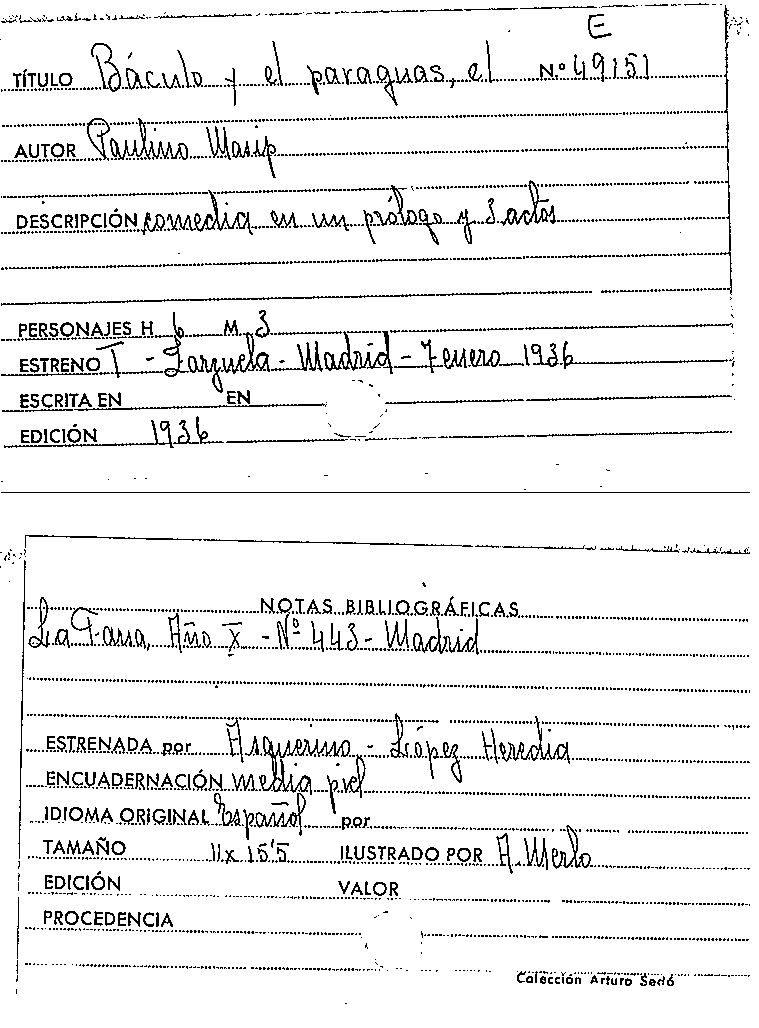 E
TÍTULO Báculo y el paraguas, el N.º 49151
AUTOR Paulino Masip
DESCRIPCIÓN comedia en un prólogo y 3 actos
PERSONAJES H. 6 M. 3
ESTRENO T - Zarzuela - Madrid - 7 enero 1936
ESCRITA EN EN
EDICIÓN 1936
NOTAS BIBLIOGRÁFICAS
La Farsa, Año X - Nº 443 - Madrid
ESTRENADA por Asquerino - López Heredia
ENCUADERNACIÓN media piel
IDIOMA ORIGINAL Español por
TAMAÑO 11 x 15'5 ILUSTRADO POR A. Merlo
EDICIÓN VALOR
PROCEDENCIA
Colección Arturo Sedó